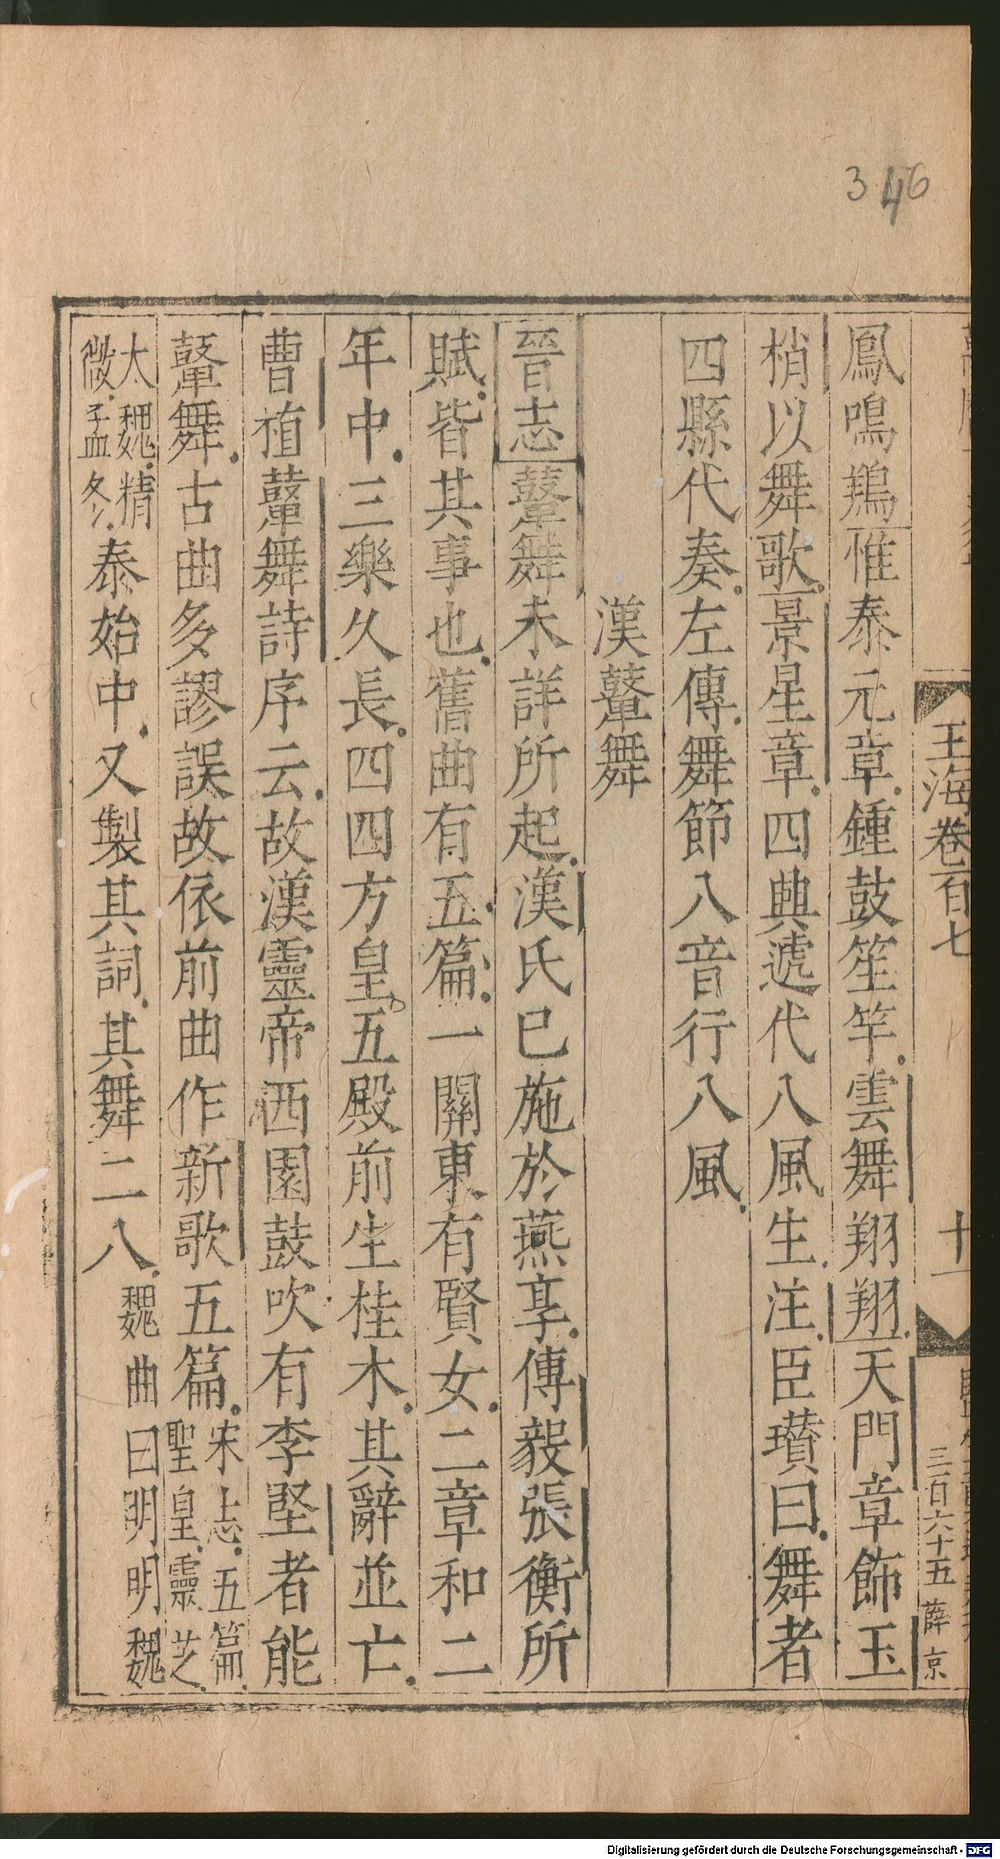 346
玉海卷百七
十一
三百六十五 薛京
鳳鳴鷄惟泰元章鍾鼓笙竽雲舞翔翔天門章飾玉
梢以舞歌景星章四興遞代八風生注臣瓚曰舞者
四縣代奏左傳舞節八音行八風
漢鼙舞
晉志鼙舞未詳所起漢氏已施於燕享傅毅張衡所
賦皆其事也舊曲有五篇一關東有賢女二章和二
年中三樂久長四四方皇五殿前生桂木其辭並亡
曹植鼙舞詩序云故漢靈帝西園鼓吹有李堅者能
鼙舞古曲多謬誤故依前曲作新歌五篇宋志五篇聖皇靈芝
太魏精微孟冬泰始中又製其詞其舞二八魏曲曰明明魏
Digitalisierung gefördert durch die Deutsche Forschungsgemeinschaft - DFG